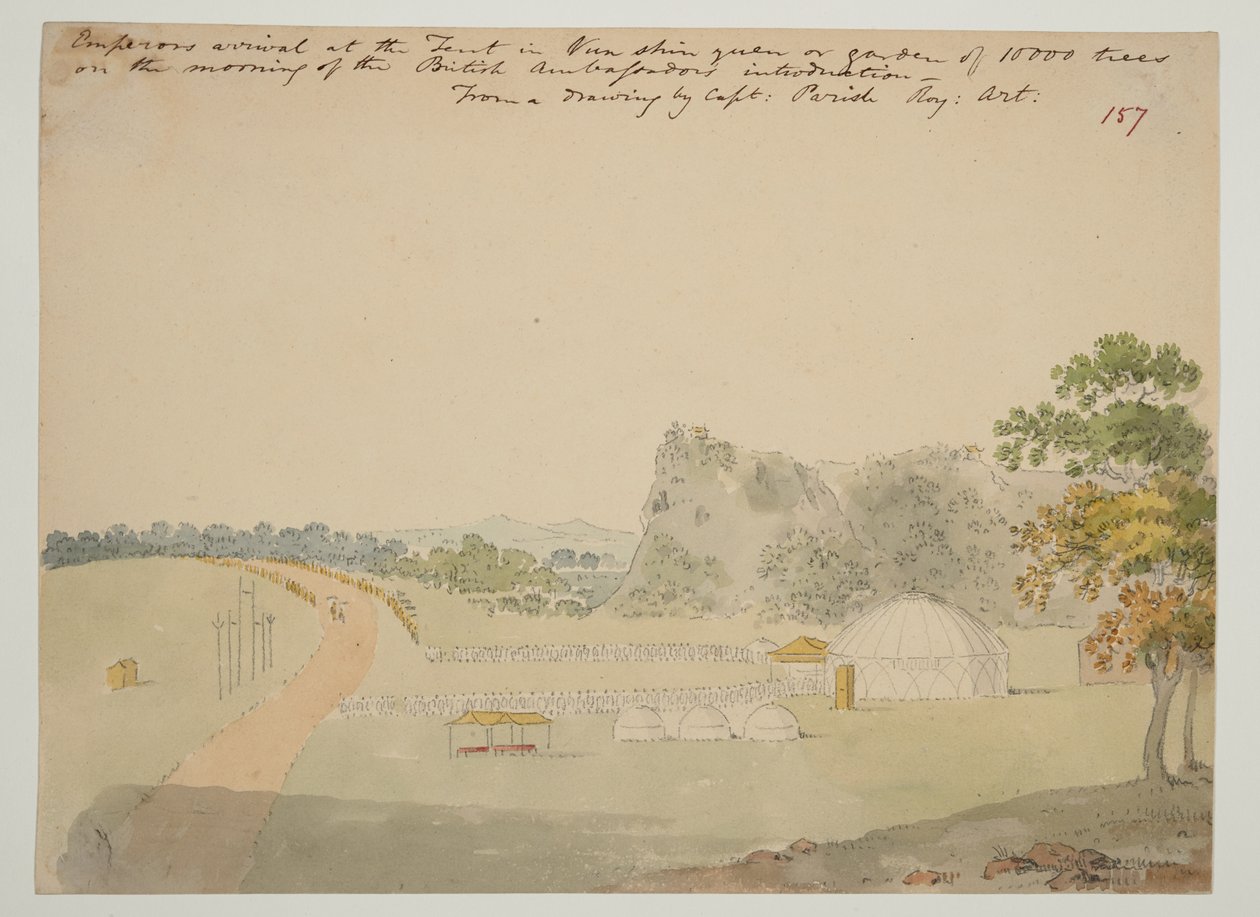 Emperors arrival at the Tent in Van shin yuen or garden of 10000 trees
on the morning of the British Ambassadors introduction —
From a drawing by Capt: Parish Roy: Art:
157